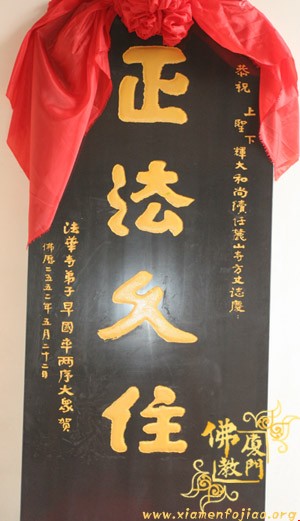 恭祝 上聖下輝大和尚續任麓山寺方丈誌慶
正法久住
法華寺弟子早因率兩序大眾賀
佛曆二五五二年五月二十二日
廈門
佛教
www.xiamenfojiao.org